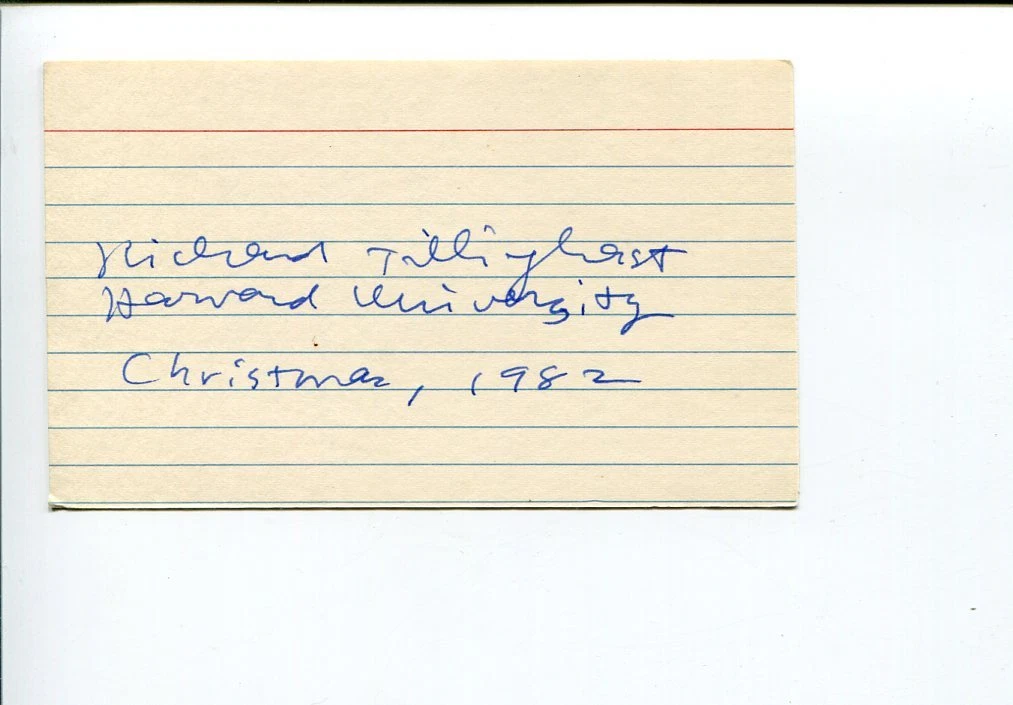 Richard Tillinghast
Harvard University
Christmas, 1982